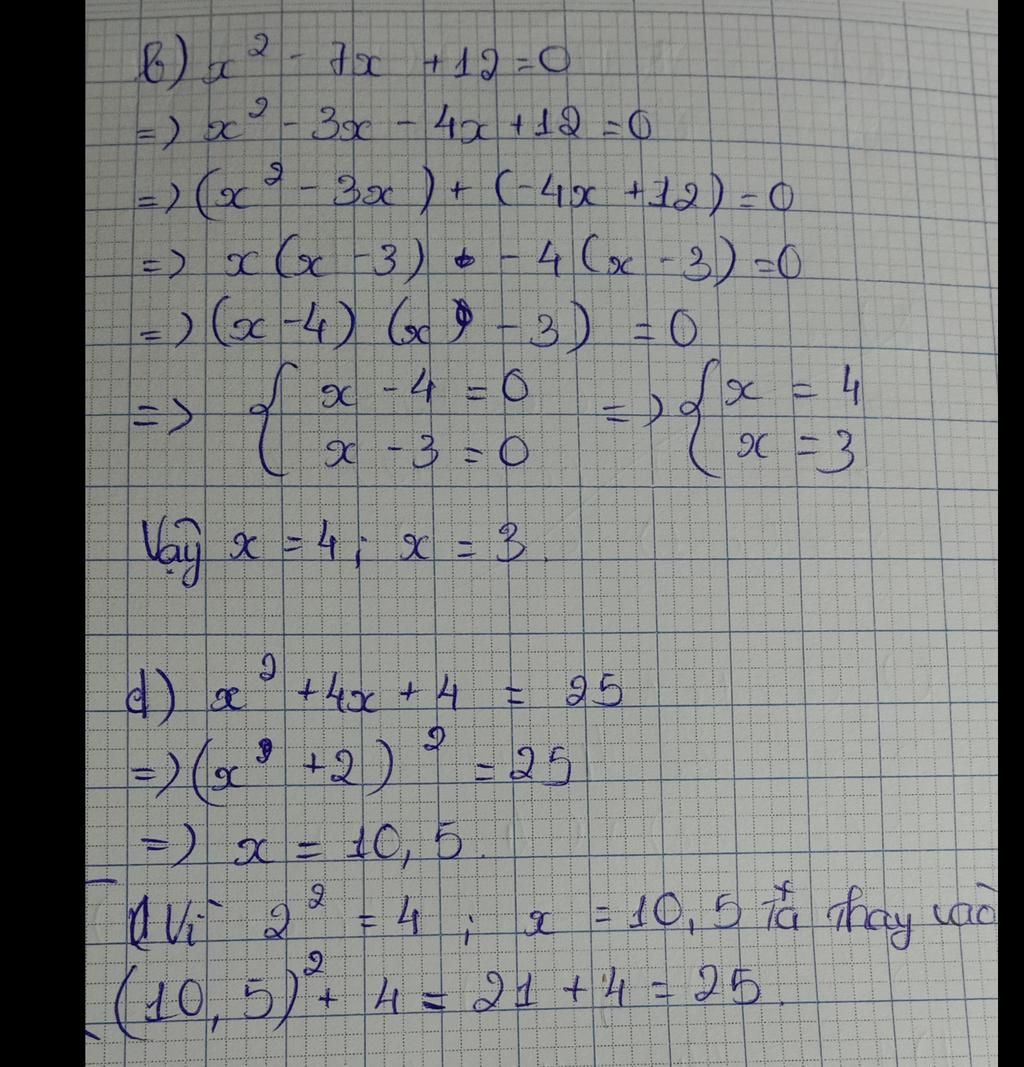 b) x² - 7x + 12 = 0
=> x² - 3x - 4x + 12 = 0
=> (x² - 3x) + (-4x + 12) = 0
=> x(x - 3) - 4(x - 3) = 0
=> (x - 4) (x - 3) = 0
=> { x - 4 = 0 => { x = 4
x - 3 = 0 x = 3
Vậy x = 4; x = 3.
d) x² + 4x + 4 = 25
=> (x + 2)² = 25
=> x = 10,5.
Vì 2² = 4 ; x = 10,5 ta thay vào
(10,5)² + 4 = 21 + 4 = 25.